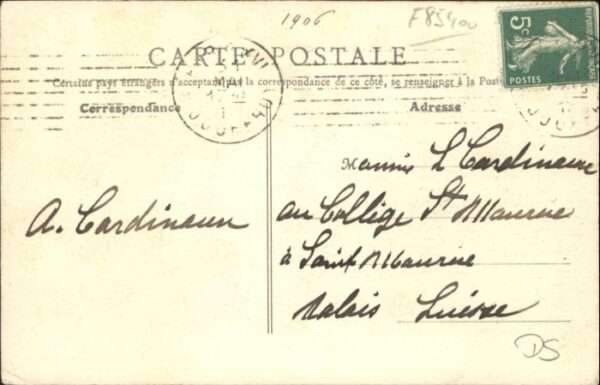 1906
F85400
CARTE POSTALE
Certains pays étrangers n'acceptant pas la correspondance de ce côté, se renseigner à la Poste
Correspondance
Adresse
5c
POSTES
A. Cardinaux
L Cardinaux
au Collège St Maurice
à Saint Maurice
Valais Suisse
DS